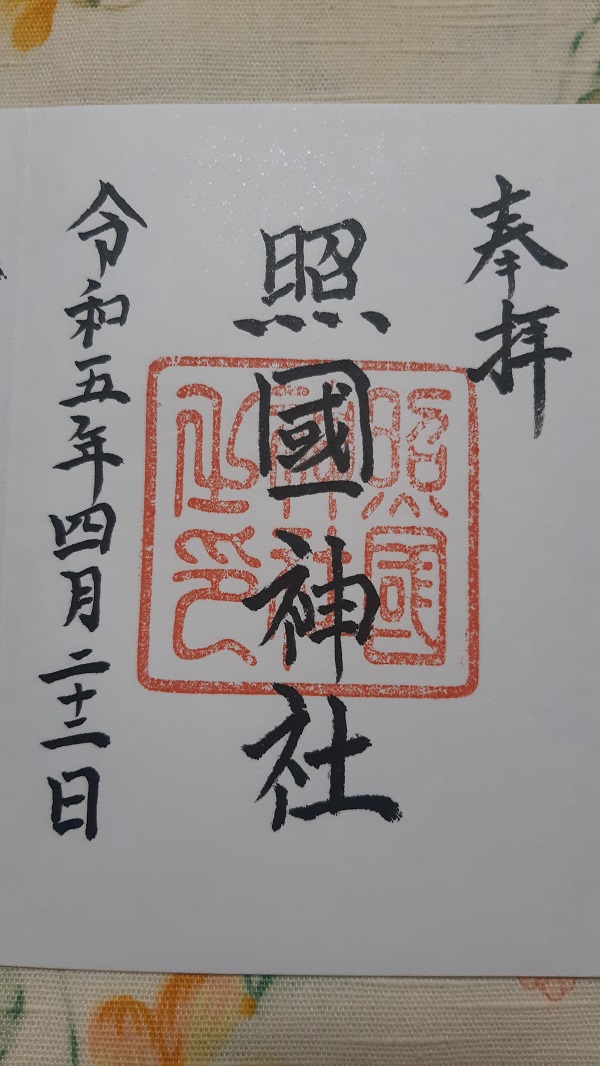 奉拝
照國神社
照國神社之印
令和五年四月二十二日